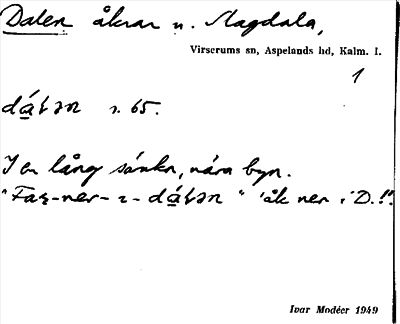 Dalen åkrar u. Magdala,
Virserums sn, Aspelands hd, Kalm. l.
1
dálən s. 65.
I en lång sänka, nära byn.
"Far-ner- i- dálən" 'åk ner i D.!'.
Ivar Modéer 1949